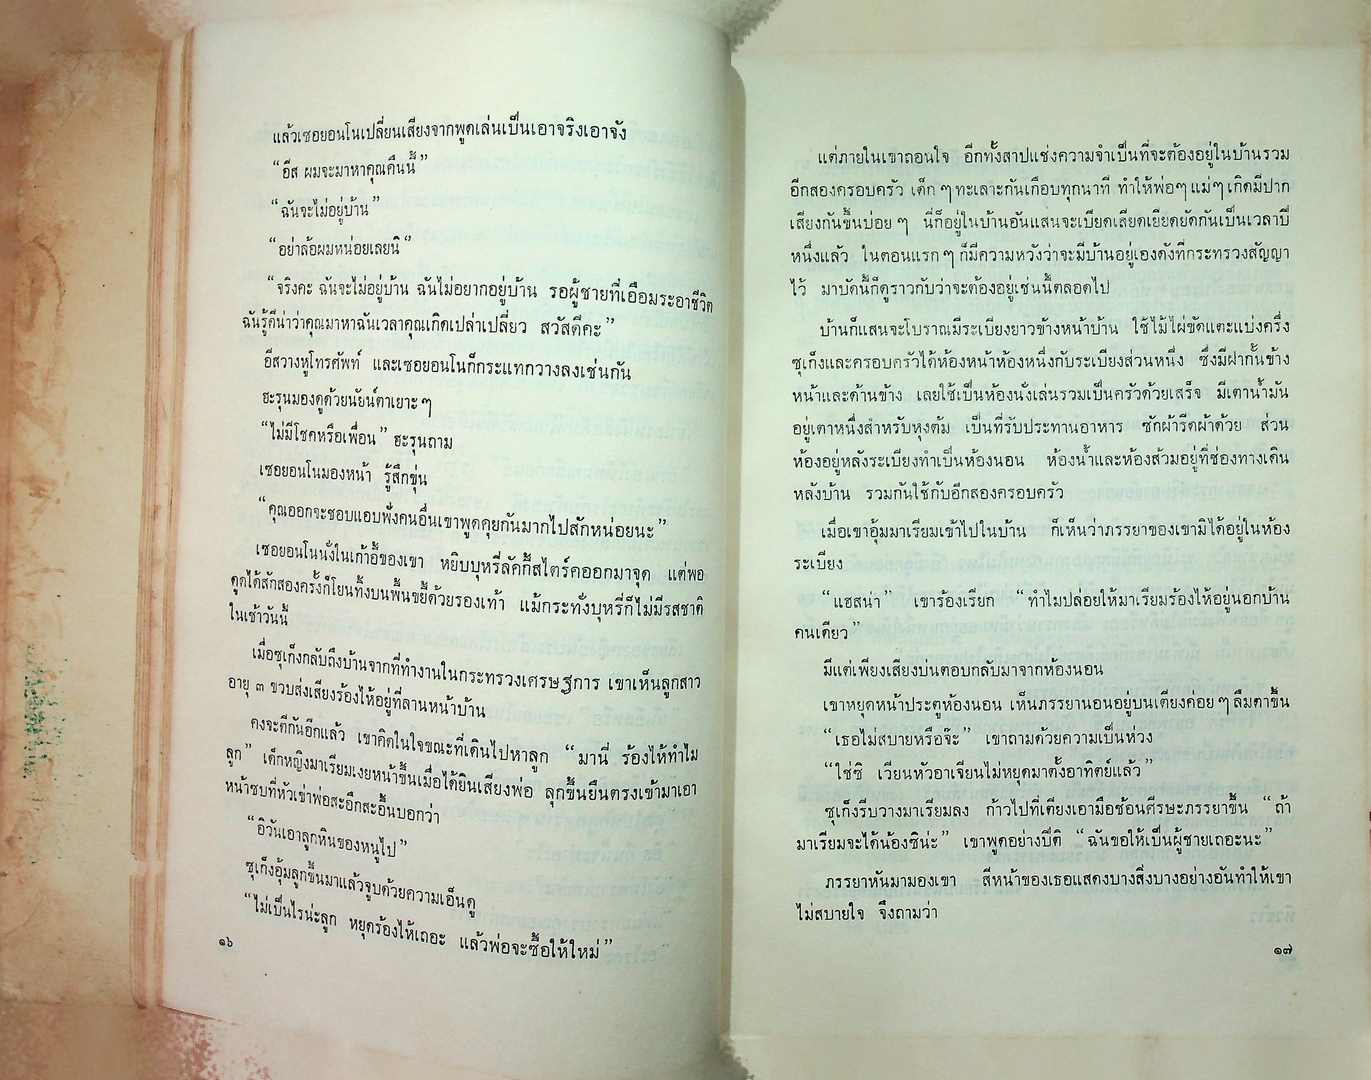 แล้วเซอยอนโนเปลี่ยนเสียงจากพูดเล่นเป็นเอาจริงเอาจัง
“อีส ผมจะมาหาคุณคืนนี้”
“ฉันจะไม่อยู่บ้าน”
“อย่าล้อผมหน่อยเลยนิ“
“จริงคะ ฉันจะไม่อยู่บ้าน ฉันไม่อยากอยู่บ้าน รอผู้ชายที่เอือมระอาชีวิต
ฉันรู้ดีน่าว่าคุณมาหาฉันเวลาคุณเกิดเปล่าเปลี่ยว สวัสดีคะ”
อีสวางหูโทรศัพท์ และเซอยอนโนก็กระแทกวางลงเช่นกัน
ฮะรุนมองดูด้วยนัยน์ตาเยาะๆ
“ไม่มีโชคหรือเพื่อน” ฮะรุนถาม
เซอยอนโนมองหน้า รู้สึกขุ่น
“คุณออกจะชอบแอบฟังคนอื่นเขาพูดคุยกันมากไปสักหน่อยนะ”
เซอยอนโนนั่งในเก้าอี้ของเขา หยิบบุหรี่ลัคกี้สไตร์คออกมาจุด แต่พอ
ดูดได้สักสองครั้งก็โยนทิ้งบนพื้นขยี้ด้วยรองเท้า แม้กระทั่งบุหรี่ก็ไม่มีรสชาติ
ในเช้าวันนี้
เมื่อซุเก็งกลับถึงบ้านจากที่ทำงานในกระทรวงเศรษฐการ เขาเห็นลูกสาว
อายุ ๓ ขวบส่งเสียงร้องไห้อยู่ที่ลานหน้าบ้าน
คงจะตีกันอีกแล้ว เขาคิดในใจขณะที่เดินไปหาลูก “มานี่ ร้องไห้ทำไม
ลูก” เด็กหญิงมาเรียมเงยหน้าขึ้นเมื่อได้ยินเสียงพ่อ ลุกขึ้นยืนตรงเข้ามาเอา
หน้าซบที่หัวเข่าพ่อสะอึกสะอื้นบอกว่า
“อิวันเอาลูกหินของหนูไป”
ซุเก็งอุ้มลูกขึ้นมาแล้วจูบด้วยความเอ็นดู
“ไม่เป็นไรน่ะลูก หยุดร้องไห้เถอะ แล้วพ่อจะซื้อให้ใหม่”
๑๖
แต่ภายในเขาถอนใจ อีกทั้งสาปแช่งความจำเป็นที่จะต้องอยู่ในบ้านรวม
อีกสองครอบครัว เด็กๆทะเลาะกันเกือบทุกนาที ทำให้พ่อๆแม่ๆเกิดมีปาก
เสียงกันขึ้นบ่อยๆ นี่ก็อยู่ในบ้านอันแสนจะเบียดเสียดเยียดยัดกันเป็นเวลาปี
หนึ่งแล้ว ในตอนแรกๆก็มีความหวังว่าจะมีบ้านอยู่เองดังที่กระทรวงสัญญา
ไว้ มาบัดนี้ก็ดูราวกับว่าจะต้องอยู่เช่นนี้ตลอดไป
บ้านก็แสนจะโบราณมีระเบียงยาวข้างหน้าบ้าน ใช้ไม้ไผ่ขัดแตะแบ่งครึ่ง
ซุเก็งและครอบครัวได้ห้องหน้าห้องหนึ่งกับระเบียงส่วนหนึ่ง ซึ่งมีฝากั้นข้าง
หน้าและด้านข้าง เลยใช้เป็นห้องนั่งเล่นรวมเป็นครัวด้วยเสร็จ มีเตาน้ำมัน
อยู่เตาหนึ่งสำหรับหุงต้ม เป็นที่รับประทานอาหาร ซักผ้ารีดผ้าด้วย ส่วน
ห้องอยู่หลังระเบียงทำเป็นห้องนอน ห้องน้ำและห้องส้วมอยู่ที่ช่องทางเดิน
หลังบ้าน รวมกันใช้กับอีกสองครอบครัว
เมื่อเขาอุ้มมาเรียมเข้าไปในบ้าน ก็เห็นว่าภรรยาของเขามิได้อยู่ในห้อง
ระเบียง
“แฮสน่า” เขาร้องเรียก “ทำไมปล่อยให้มาเรียมร้องไห้อยู่นอกบ้าน
คนเดียว”
มีแต่เพียงเสียงบ่นตอบกลับมาจากห้องนอน
เขาหยุดหน้าประตูห้องนอน เห็นภรรยานอนอยู่บนเตียงค่อยๆลืมตาขึ้น
“เธอไม่สบายหรือจ๊ะ” เขาถามด้วยความเป็นห่วง
“ใช่ซิ เวียนหัวอาเจียนไม่หยุดมาตั้งอาทิตย์แล้ว”
ซุเก็งรีบวางมาเรียมลง ก้าวไปที่เตียงเอามือช้อนศีรษะภรรยาขึ้น “ถ้า
มาเรียมจะได้น้องซิน่ะ” เขาพูดอย่างปีติ “ฉันขอให้เป็นผู้ชายเถอะนะ”
ภรรยาหันมามองเขา สีหน้าของเธอแสดงบางสิ่งบางอย่างอันทำให้เขา
ไม่สบายใจ จึงถามว่า
๑๗